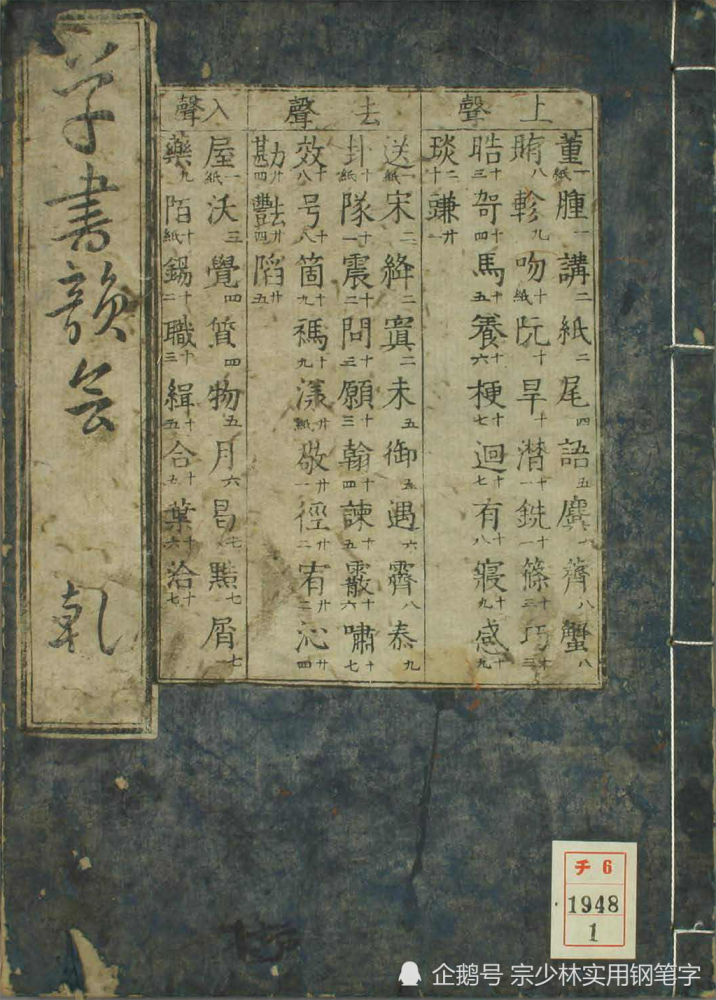 草書韻会 乾
上聲
董紙一 腫一 講二 紙二 尾四 語五 麌 薺八 蟹八
賄八 軫九 吻紙十 阮十 旱十 潸十一 銑十一 篠十三 巧十三
晧十三 哿十四 馬十五 養十六 梗十七 迥十七 有十八 寢十九 感十九
琰二十 豏廿一
去聲
送紙一 宋二 絳二 寘二 未五 御五 遇六 霽八 泰九
卦紙十 隊十一 震十二 問十三 願十三 翰十四 諫十五 霰十六 嘯十七
效十八 号十八 箇十九 禡十九 漾紙廿 敬廿一 徑廿二 宥廿二 沁廿四
勘廿四 豔廿四 陷廿五
入聲
屋紙一 沃三 覺四 質四 物五 月六 曷七 黠七 屑七
藥九 陌紙十 錫十二 職十三 緝十五 合十五 葉十六 洽十七
チ6
1948
1
企鹅号 宗少林实用钢笔字